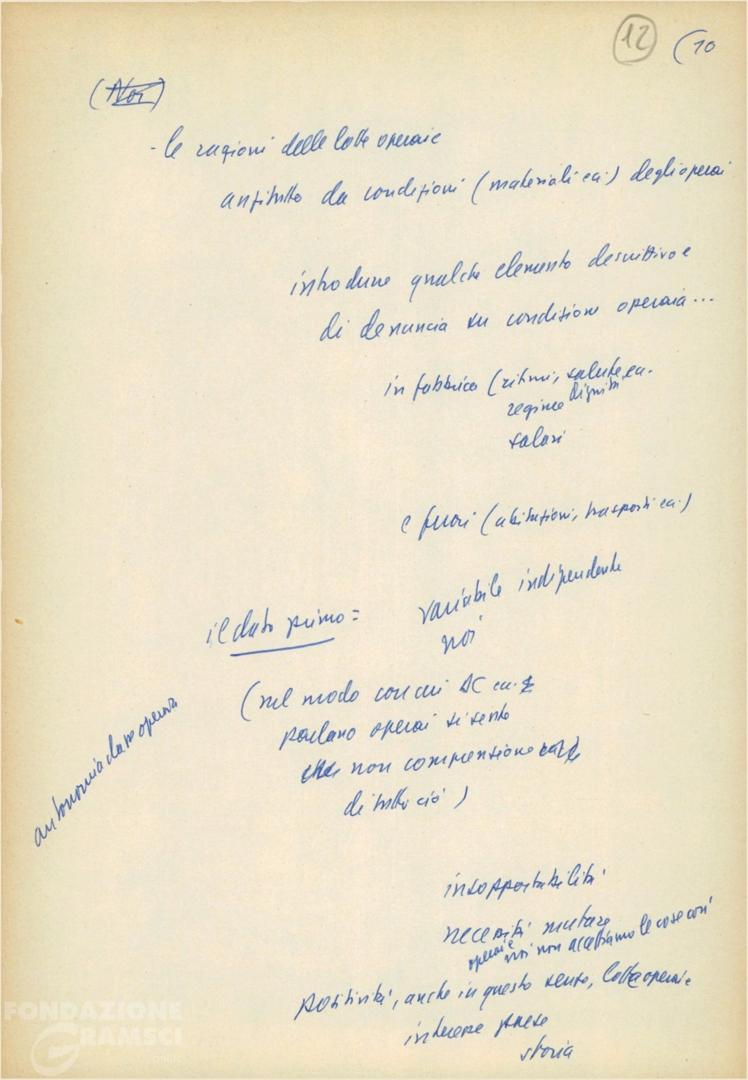 12 (10
(Noi)
- le ragioni delle lotte operaie
anzitutto da condizioni (materiali ecc.) degli operai
introdurre qualche elemento descrittivo e
di denuncia su condizione operaia...
in fabbrica (ritmi, salute, ecc.
regime dignità
salari
e fuori (abitazioni, trasporti ecc.)
il dato primo = variabile indipendente
noi
(nel modo con cui DC ecc.
parlano operai si sente
non comprensione
di tutto ciò)
autonomia classe operaia
insopportabilità
necessità mutare
operaie noi non accettiamo le cose così
positività, anche in questo senso, lotta operaie
interesse paese
storia
FONDAZIONE
GRAMSCI